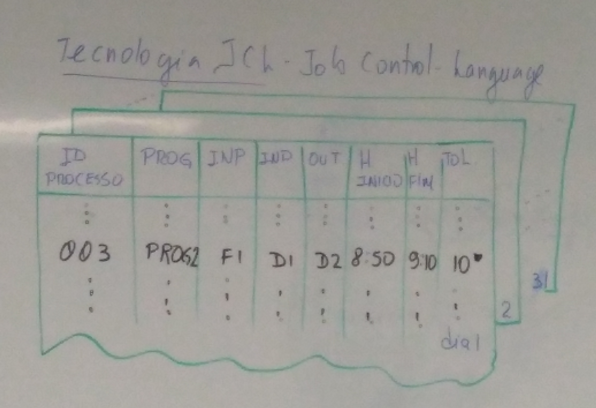 Tecnologia JCL - Job Control - Language
ID PROCESSO PROG INP IND OUT H INICIO H FIM TOL
003 PROG2 F1 D1 D2 8:50 9:10 10"
dia 1
2
31